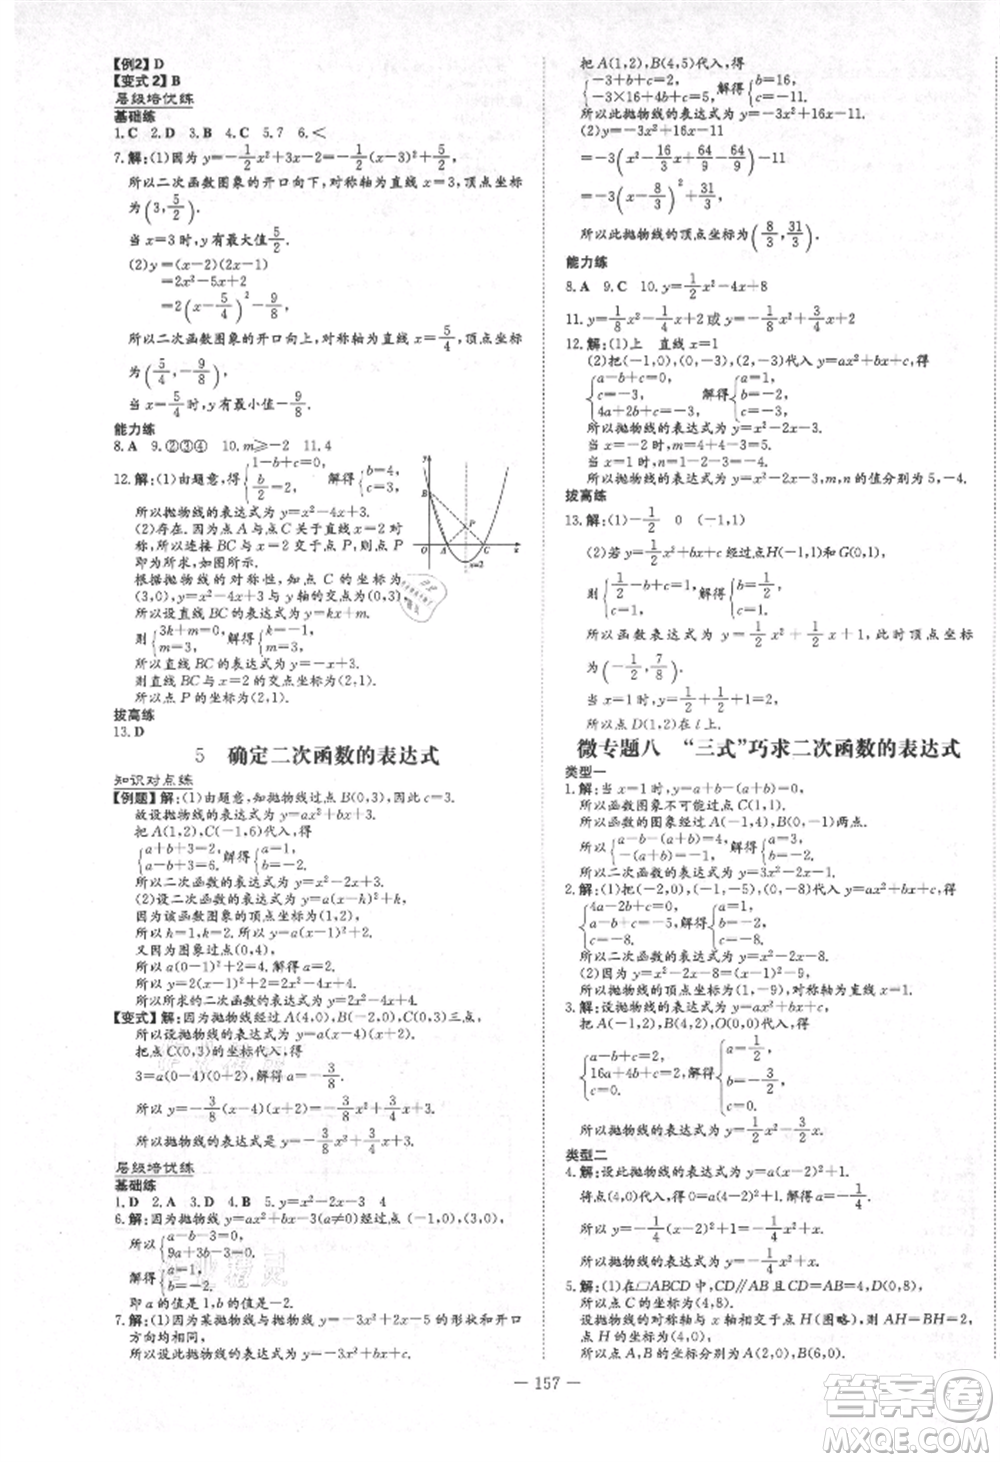 【例2】D
【变式2】B
层级培优练
基础练
1.C 2.D 3.B 4.C 5.7 6.<
7.解:(1)因为y=-1/2x²+3x-2=-1/2(x-3)²+5/2,
所以二次函数图象的开口向下,对称轴为直线x=3,顶点坐标
为(3,5/2).
当x=3时,y有最大值5/2.
(2)y=(x-2)(2x-1)
=2x²-5x+2
=2(x-5/4)²-9/8,
所以二次函数图象的开口向上,对称轴为直线x=5/4,顶点坐标
为(5/4,-9/8),
当x=5/4时,y有最小值-9/8.
能力练
8.A 9.②③④ 10.m≥-2 11.4
12.解:(1)由题意,得{1-b+c=0, b/2=2, 解得{b=4, c=3.
所以抛物线的表达式为y=x²-4x+3.
(2)存在.因为点A与点C关于直线x=2对称,
所以连接BC与x=2交于点P,则点P
即为所求,如图所示.
根据抛物线的对称性,知点C的坐标为
(3,0),y=x²-4x+3与y轴的交点为(0,3),
所以设直线BC的表达式为y=kx+m.
则{3k+m=0, m=3, 解得{k=-1, m=3.
所以直线BC的表达式为y=-x+3.
则直线BC与x=2的交点坐标为(2,1).
所以点P的坐标为(2,1).
y
B
P
O
A
C
x
x=2
拔高练
13.D
5 确定二次函数的表达式
知识对点练
【例题】解:(1)由题意,知抛物线过点B(0,3),此时c=3.
故设抛物线的表达式为y=ax²+bx+3.
把A(1,2),C(-1,6)代入,得
{a+b+3=2, a-b+3=6. 解得{a=1, b=-2.
所以二次函数的表达式为y=x²-2x+3.
(2)设二次函数的表达式为y=a(x-h)²+k,
因为该函数图象的顶点坐标为(1,2),
所以h=1,k=2.所以y=a(x-1)²+2.
又因为图象过点(0,4),
所以a(0-1)²+2=4.解得a=2.
所以y=2(x-1)²+2=2x²-4x+4.
所以所求的二次函数的表达式为y=2x²-4x+4.
【变式】解:因为抛物线经过A(4,0),B(-2,0),C(0,3)三点,
所以设抛物线的表达式为y=a(x-4)(x+2).
把点C(0,3)的坐标代入,得
3=a(0-4)(0+2),解得a=-3/8.
所以y=-3/8(x-4)(x+2)=-3/8x²+3/4x+3.
所以抛物线的表达式是y=-3/8x²+3/4x+3.
层级培优练
基础练
1.D 2.A 3.D 4.B 5.y=x²-2x-3 4
6.解:因为抛物线y=ax²+bx-3(a≠0)经过点(-1,0),(3,0),
所以{a-b-3=0, 9a+3b-3=0.
解得{a=1, b=-2.
即a的值是1,b的值是-2.
7.解:(1)因为某抛物线与抛物线y=-3x²-x+5的形状和开口
方向均相同,
所以设此抛物线的表达式为y=-3x²+bx+c,
把A(1,2),B(4,5)代入,得
{-3+b+c=2, -3×16+4b+c=5, 解得{b=16, c=-11.
所以此抛物线的表达式为y=-3x²+16x-11.
(2)y=-3x²+16x-11
=-3(x²-16/3x+64/9-64/9)-11
=-3(x-8/3)²+31/3,
所以此抛物线的顶点坐标为(8/3,31/3).
能力练
8.A 9.C 10.y=1/2x²-4x+8
11.y=1/8x²-1/4x+2或y=-1/8x²+3/4x+2
12.解:(1)上 直线x=1
(2)把(-1,0),(0,-3),(2,-3)代入y=ax²+bx+c,得
{a-b+c=0, c=-3, 4a+2b+c=-3. 解得{a=1, b=-2, c=-3.
所以抛物线的表达式为y=x²-2x-3.
当x=-2时,m=4+4-3=5;
当x=1时,n=1-2-3=-4.
所以抛物线的表达式为y=x²-2x-3,m,n的值分别为5,-4.
拔高练
13.解:(1)-1/4 0 (-1,1)
(2)若y=1/2x²+bx+c经过点H(-1,1)和G(0,1),
则{1/2-b+c=1, c=1, 解得{b=1/2, c=1.
所以函数表达式为y=1/2x²+1/2x+1,此时顶点坐标
为(-1/2,7/8).
当x=1时,y=1/2+1/2+1=2,
所以点D(1,2)在l上.
微专题八 “三式”巧求二次函数的表达式
类型一
1.解:因为当x=1时,y=a+b-(a+b)=0,
所以函数图象不可能过点C(1,1).
所以函数的图象经过A(-1,4),B(0,-1)两点.
所以{a-b-(a+b)=4, -(a+b)=-1. 解得{a=3, b=-2.
所以二次函数的表达式为y=3x²-2x-1.
2.解:(1)把(-2,0),(-1,-5),(0,-8)代入y=ax²+bx+c,得
{4a-2b+c=0, a-b+c=-5, c=-8. 解得{a=1, b=-2, c=-8.
所以抛物线的表达式为y=x²-2x-8.
(2)抛物线的顶点坐标为(1,-9),对称轴为直线x=1.
3.解:设抛物线的表达式为y=ax²+bx+c,
把A(1,2),B(4,0),O(0,0)代入,得
{a+b+c=2, 16a+4b+c=0, c=0. 解得
所以抛物线的表达式为
类型二
4.解:设此抛物线的表达式为y=a(x-2)²+1,
将点(4,0)代入,得0=a(4-2)²+1,
所以a=-1/4.所以y=-1/4(x-2)²+1,
所以抛物线的表达式为y=-1/4x²+x.
5.解:(1)在▱ABCD中,CD∥AB且CD=AB=4,D(0,8),
所以点C的坐标为(4,8).
设抛物线的对称轴与x轴相交于点H(图略),则AH=BH=2,
点H的坐标为(4,0),
所以点A,B的坐标为A(2,0),B(6,0).
— 157 —
答案圈
MXQE.COM